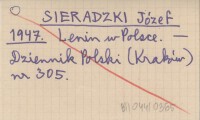 SIERADZKI Józef
1947. Lenin w Polsce. —
Dziennik Polski (Kraków)
nr 305.